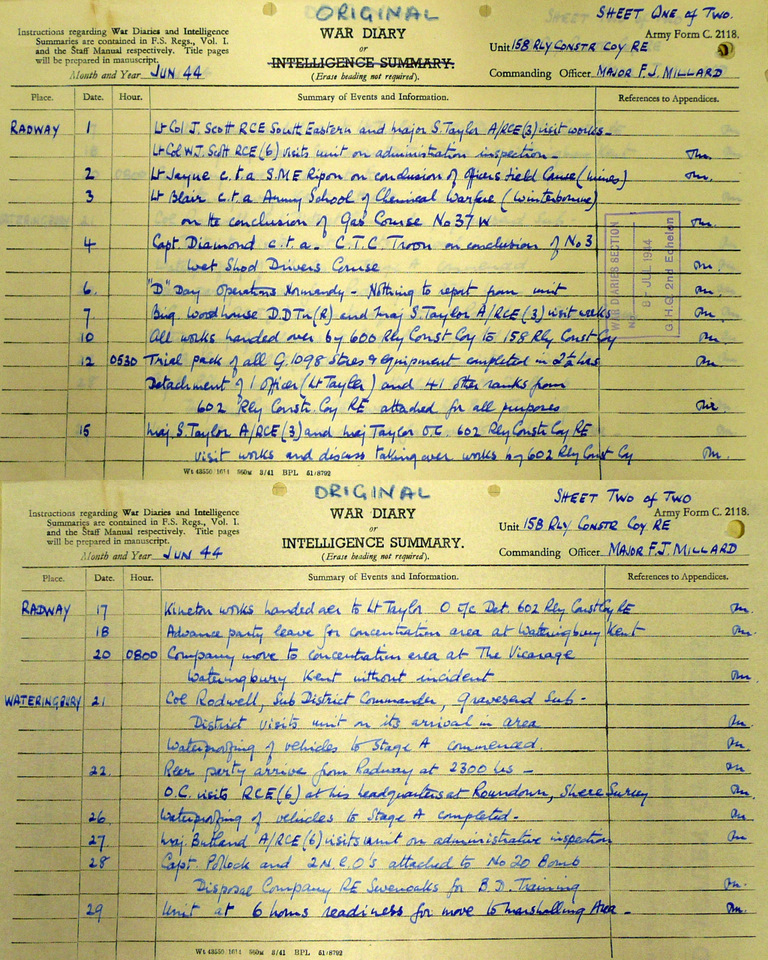 ORIGINAL
SHEET ONE OF TWO.
Instructions regarding War Diaries and Intelligence
Summaries are contained in F.S. Regs., Vol. I.
and the Staff Manual respectively. Title pages
will be prepared in manuscript.
WAR DIARY
or
INTELLIGENCE SUMMARY.
(Erase heading not required).
Army Form C. 2118.
Unit 158 RLY CONSTR COY RE
Month and Year JUN 44
Commanding Officer MAJOR F.J. MILLARD
Place. Date. Hour. Summary of Events and Information. References to Appendices.
RADWAY 1 Lt Col J. Scott RCE South Eastern and Major S. Taylor A/RCE(3) visit works.
Lt Col W.J. Scott RCE(6) visits unit on administration inspection.
2 Lt Jayne c.t.a S.M.E Ripon on conclusion of Officers Field Course (mines)
3 Lt Blair c.t.a Army School of Chemical Warfare (Winterbourne)
on the conclusion of Gas Course No 37 W
4 Capt Diamond c.t.a. C.T.C. Troon on conclusion of No 3
Wet Shod Drivers Course
6. "D" Day Operations Normandy - Nothing to report from unit
7 Brig Woodhouse D.D.Tn(R) and Maj S. Taylor A/RCE(3) visit works
10 All works handed over by 600 Rly Const Coy to 158 Rly Const Coy
12 0530 Trial pack of all G.1098 Stores & Equipment completed in 2½ hrs
Detachment of 1 officer (Lt Taylor) and 41 other ranks from
602 Rly Constr Coy RE attached for all purposes
15 Maj. S. Taylor A/RCE(3) and Maj Taylor O.C. 602 Rly Constr Coy RE
visit works and discuss taking over works by 602 Rly Const Coy
WAR DIARIES SECTION
No.
8 - JUL 1944
G.H.Q. 2nd Echelon
Wt 43550/1614 560M 3/41 BPL 51/8792
ORIGINAL
SHEET TWO OF TWO
Instructions regarding War Diaries and Intelligence
Summaries are contained in F.S. Regs., Vol. I.
and the Staff Manual respectively. Title pages
will be prepared in manuscript.
WAR DIARY
or
INTELLIGENCE SUMMARY.
(Erase heading not required).
Army Form C. 2118.
Unit 158 RLY CONSTR COY RE
Month and Year JUN 44
Commanding Officer MAJOR F.J. MILLARD
Place. Date. Hour. Summary of Events and Information. References to Appendices.
RADWAY 17 Kineton works handed over to Lt Taylor O i/c Det. 602 Rly Const Coy RE
18 Advance party leave for concentration area at Wateringbury Kent
20 0800 Company move to concentration area at The Vicarage
Wateringbury Kent without incident
WATERINGBURY 21 Col Rodwell, Sub District Commander, Gravesend Sub-
District visits unit on its arrival in area
Waterproofing of vehicles to Stage A commenced.
22. Rear party arrive from Radway at 2300 hrs -
O.C. visits RCE(6) at his headquarters at Roundown, Shere Surrey
26 Waterproofing of vehicles to Stage A completed.
27 Maj. Butland A/RCE(6) visits unit on administrative inspection
28 Capt Pollock and 2 N.C.O's attached to No 20 Bomb
Disposal Company RE Sevenoaks for B.D. Training
29 Unit at 6 hours readiness for move to Marshalling Area.
Wt 43550/1614 560M 3/41 BPL 51/8792